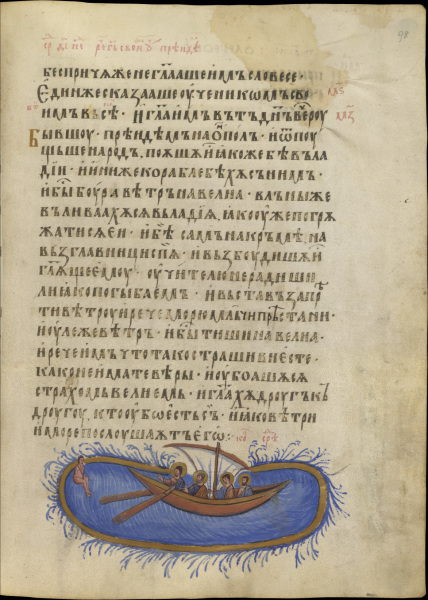 98
беспричѧженеглаашеимъсловесе·
Єдинжесказаашеоученикѡмъсво
имъвьсѣ· и҆гл҃аимъвътъдн҃ьвероу
бывшоу· прѣидѣмънаѡ҆полъ· иѿпоу
щьшенарод, поѧшѧи҆ꙗкожебѣвъла
дїи· и҆и҆нижекораблебѣхѫсънимъ·
и҆бы҇боурꙗвѣтрънавелиа· влъныже
въливаахѫсѧвьладїѫ, ꙗкоужепогрѫ
жатисѧеи· и҆бѣсамънакръмѣ, на
възглавнищиспѧ· и҆възбоудишѧи҆
гл҃ѧщеемоу· оучителюнерадиши
лиꙗкопогыбаемъ· и҆въставъзапрѣ
тивѣтроуи҆речеморюмлъчипрѣстани·
и҆оулежевѣтръ· и҆бы҇тишинавелиа·
и҆речеимъчтотакострашивиесте·
каконеиматевѣры· и҆оубоашѧсѧ
страхомьвелиемь· и҆гл҃ахѫдроугъкъ
дроугоу, ктооубосьестъ· ꙗковѣтри
и҆морепослоушаѧтъего: